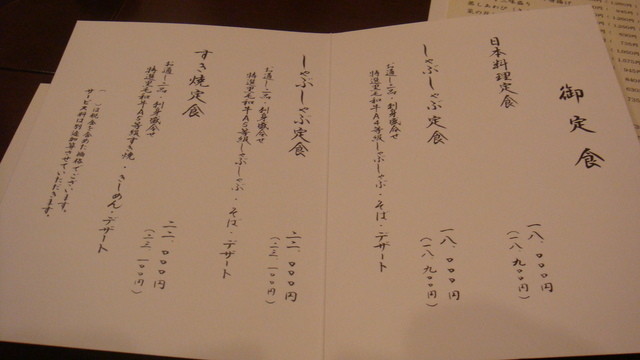 御定食
日本料理定食
一八、〇〇〇円
（一八、九〇〇円）
しゃぶしゃぶ定食
お通し二品・刺身盛合せ
特選黒毛和牛A4等級しゃぶしゃぶ・そば・デザート
一八、〇〇〇円
（一八、九〇〇円）
しゃぶしゃぶ定食
お通し二品・刺身盛合せ
特選黒毛和牛A5等級しゃぶしゃぶ・そば・デザート
二二、〇〇〇円
（二三、一〇〇円）
すき焼定食
お通し二品・刺身盛合せ
特選黒毛和牛A5等級すき焼・きしめん・デザート
二二、〇〇〇円
（二三、一〇〇円）
（　）は税金を含めた価格でございます。
サービス料は別途加算させていただきます。